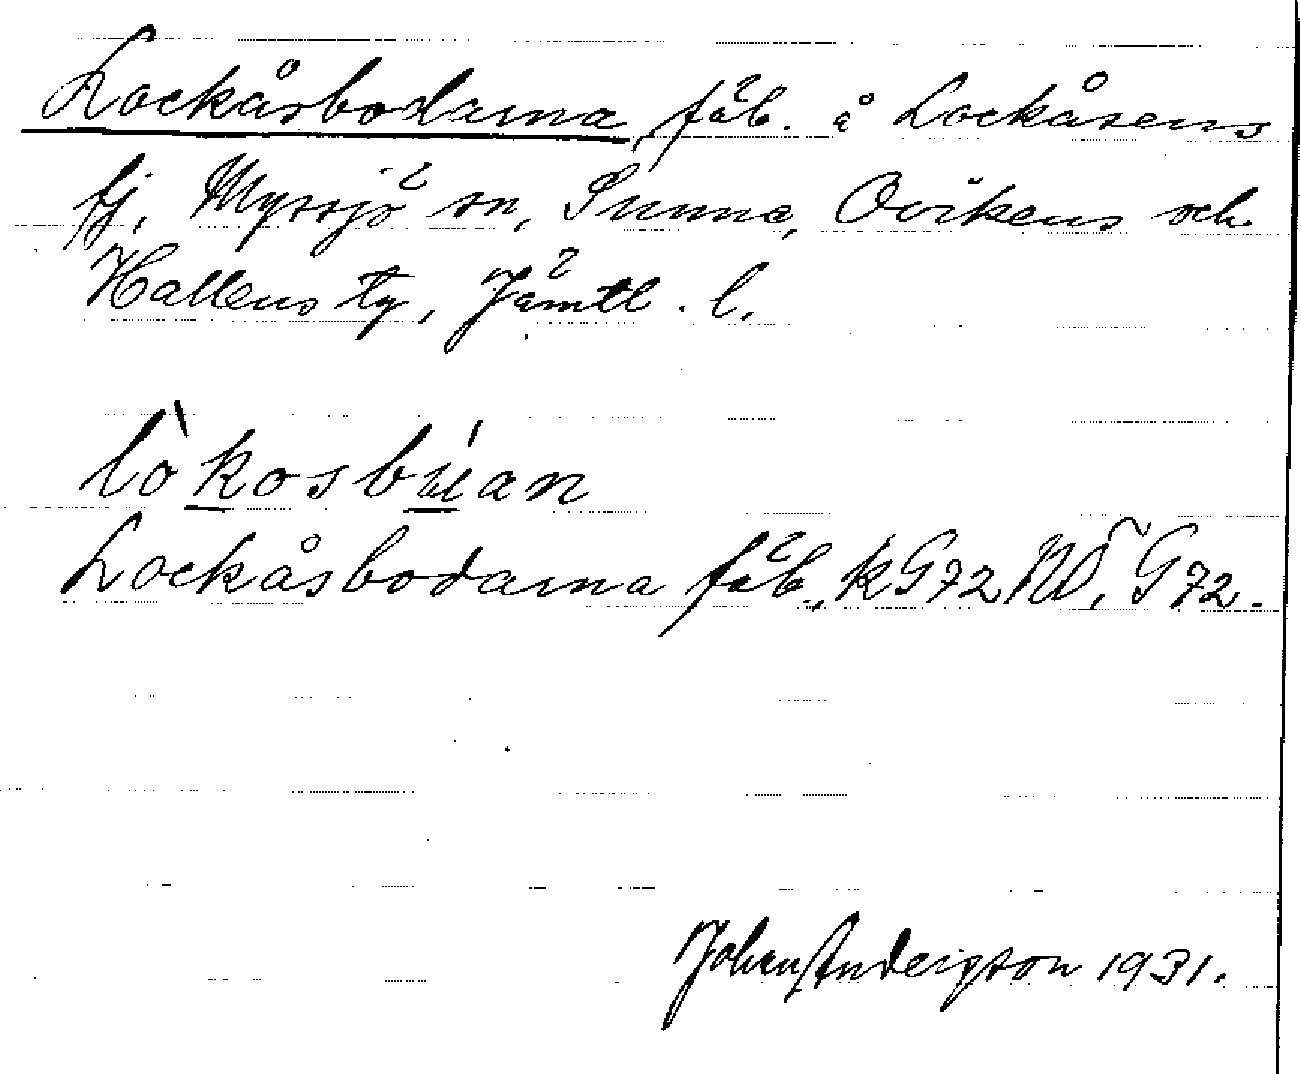 Lockåsbodarna fäb. å Lockåsens
fj. Myssjö sn, Sunne, Ovikens och
Hallens tg, Jämtl. l.
lòkosbúan
Lockåsbodarna fäb., KG72NO, G72.
Johan Andersson 1931.